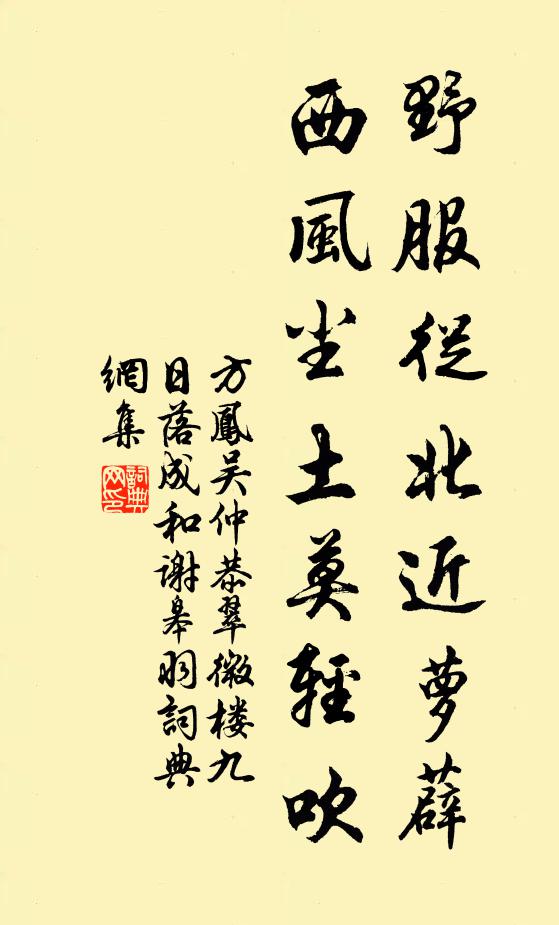 野服從此近萝薜
西風尘土莫輕吹
方鳳吴仲恭翠微楼九
日落成和谢皋羽詞典
網集
詞典网印